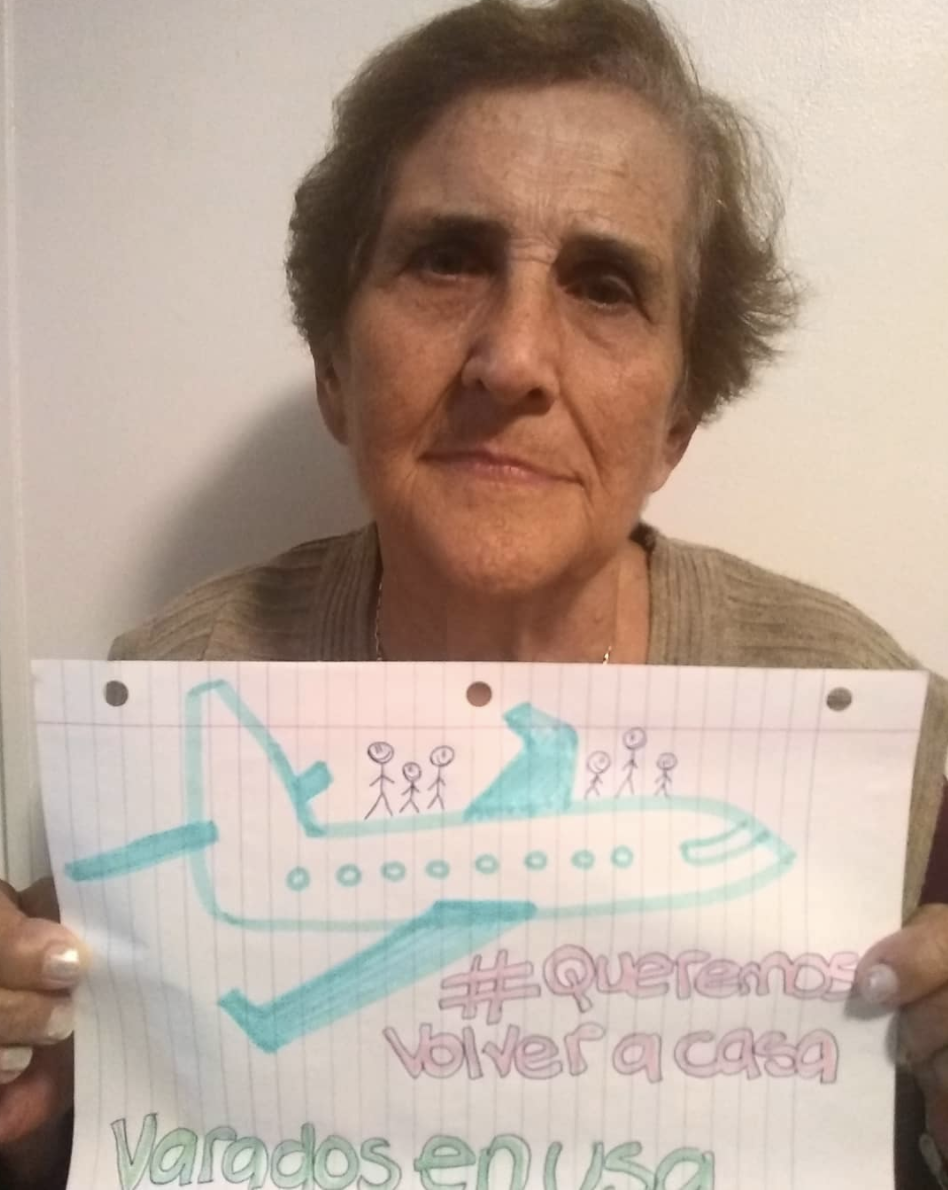 #Queremos
Volver a casa
Varados en usa